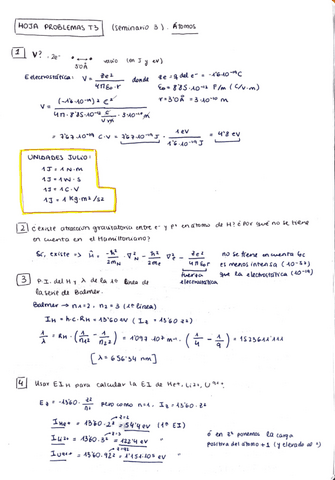 HOJA PROBLEMAS T3 (seminario 3). Átomos
1 V? 2e⁻ 3.0Å vacío (en J y eV)
E electrostática: V = ze²/4πε₀·r donde
qe = q del e⁻ = -1'6·10⁻¹⁹C
ε₀ = 8'85·10⁻¹² F/m (C/V·m)
r = 3'0Å = 3·10⁻¹⁰ m
V = (-1'6·10⁻¹⁹)² C² / 4π·8'85·10⁻¹² C/Vm · 3·10⁻¹⁰ m
= 7'67·10⁻¹⁹ C·V = 7'67·10⁻¹⁹ J · 1 eV / 1'6·10⁻¹⁹ J = 4'8 eV
UNIDADES JULIO:
1J = 1 N·m
1J = 1 W·s
1J = 1 C·V
1J = 1 Kg·m²/s²
2 ¿Existe atracción gravitatoria entre e⁻ y p⁺ en átomo de H? ¿Por qué no se tiene
en cuenta en el Hamiltoniano?
Sí, existe => Ĥ = -ħ²/2m_N · ∇²_N - ħ²/2me ∇²_e - ze²/4πε₀r
fuerza electrostática
no se tiene en cuenta
es menos intensa
que la electrostática
3 P.I. del H y λ de la 1ª línea de
la serie de Balmer.
Balmer → n₁=2. n₂=3 (1ª línea)
I_H = h·c·R_H = 13'60 eV (I_z = 13'60 z²)
1/λ = R_H (1/n₁² - 1/n₂²) = 1'097·10⁷ m⁻¹ · (1/4 - 1/9) = 1523611'111
[λ = 656'34 nm]
4 Usar EI_H para calcular la EI de He⁺, Li²⁺, U⁹¹⁺
E_z = -13'60 · z²/n² pero como n=1. I_z = 13'60 z²
I_He⁺ = 13'60·2² = 54'4 eV (1ª EI)
z=2
I_Li²⁺ = 13'60·3² = 122'4 eV
z=3
I_U⁹¹⁺ = 13'60·92² = 1'151·10⁵ eV
z=92
ó en z² ponemos la carga
positiva del átomo +1 (y elevado al ²)